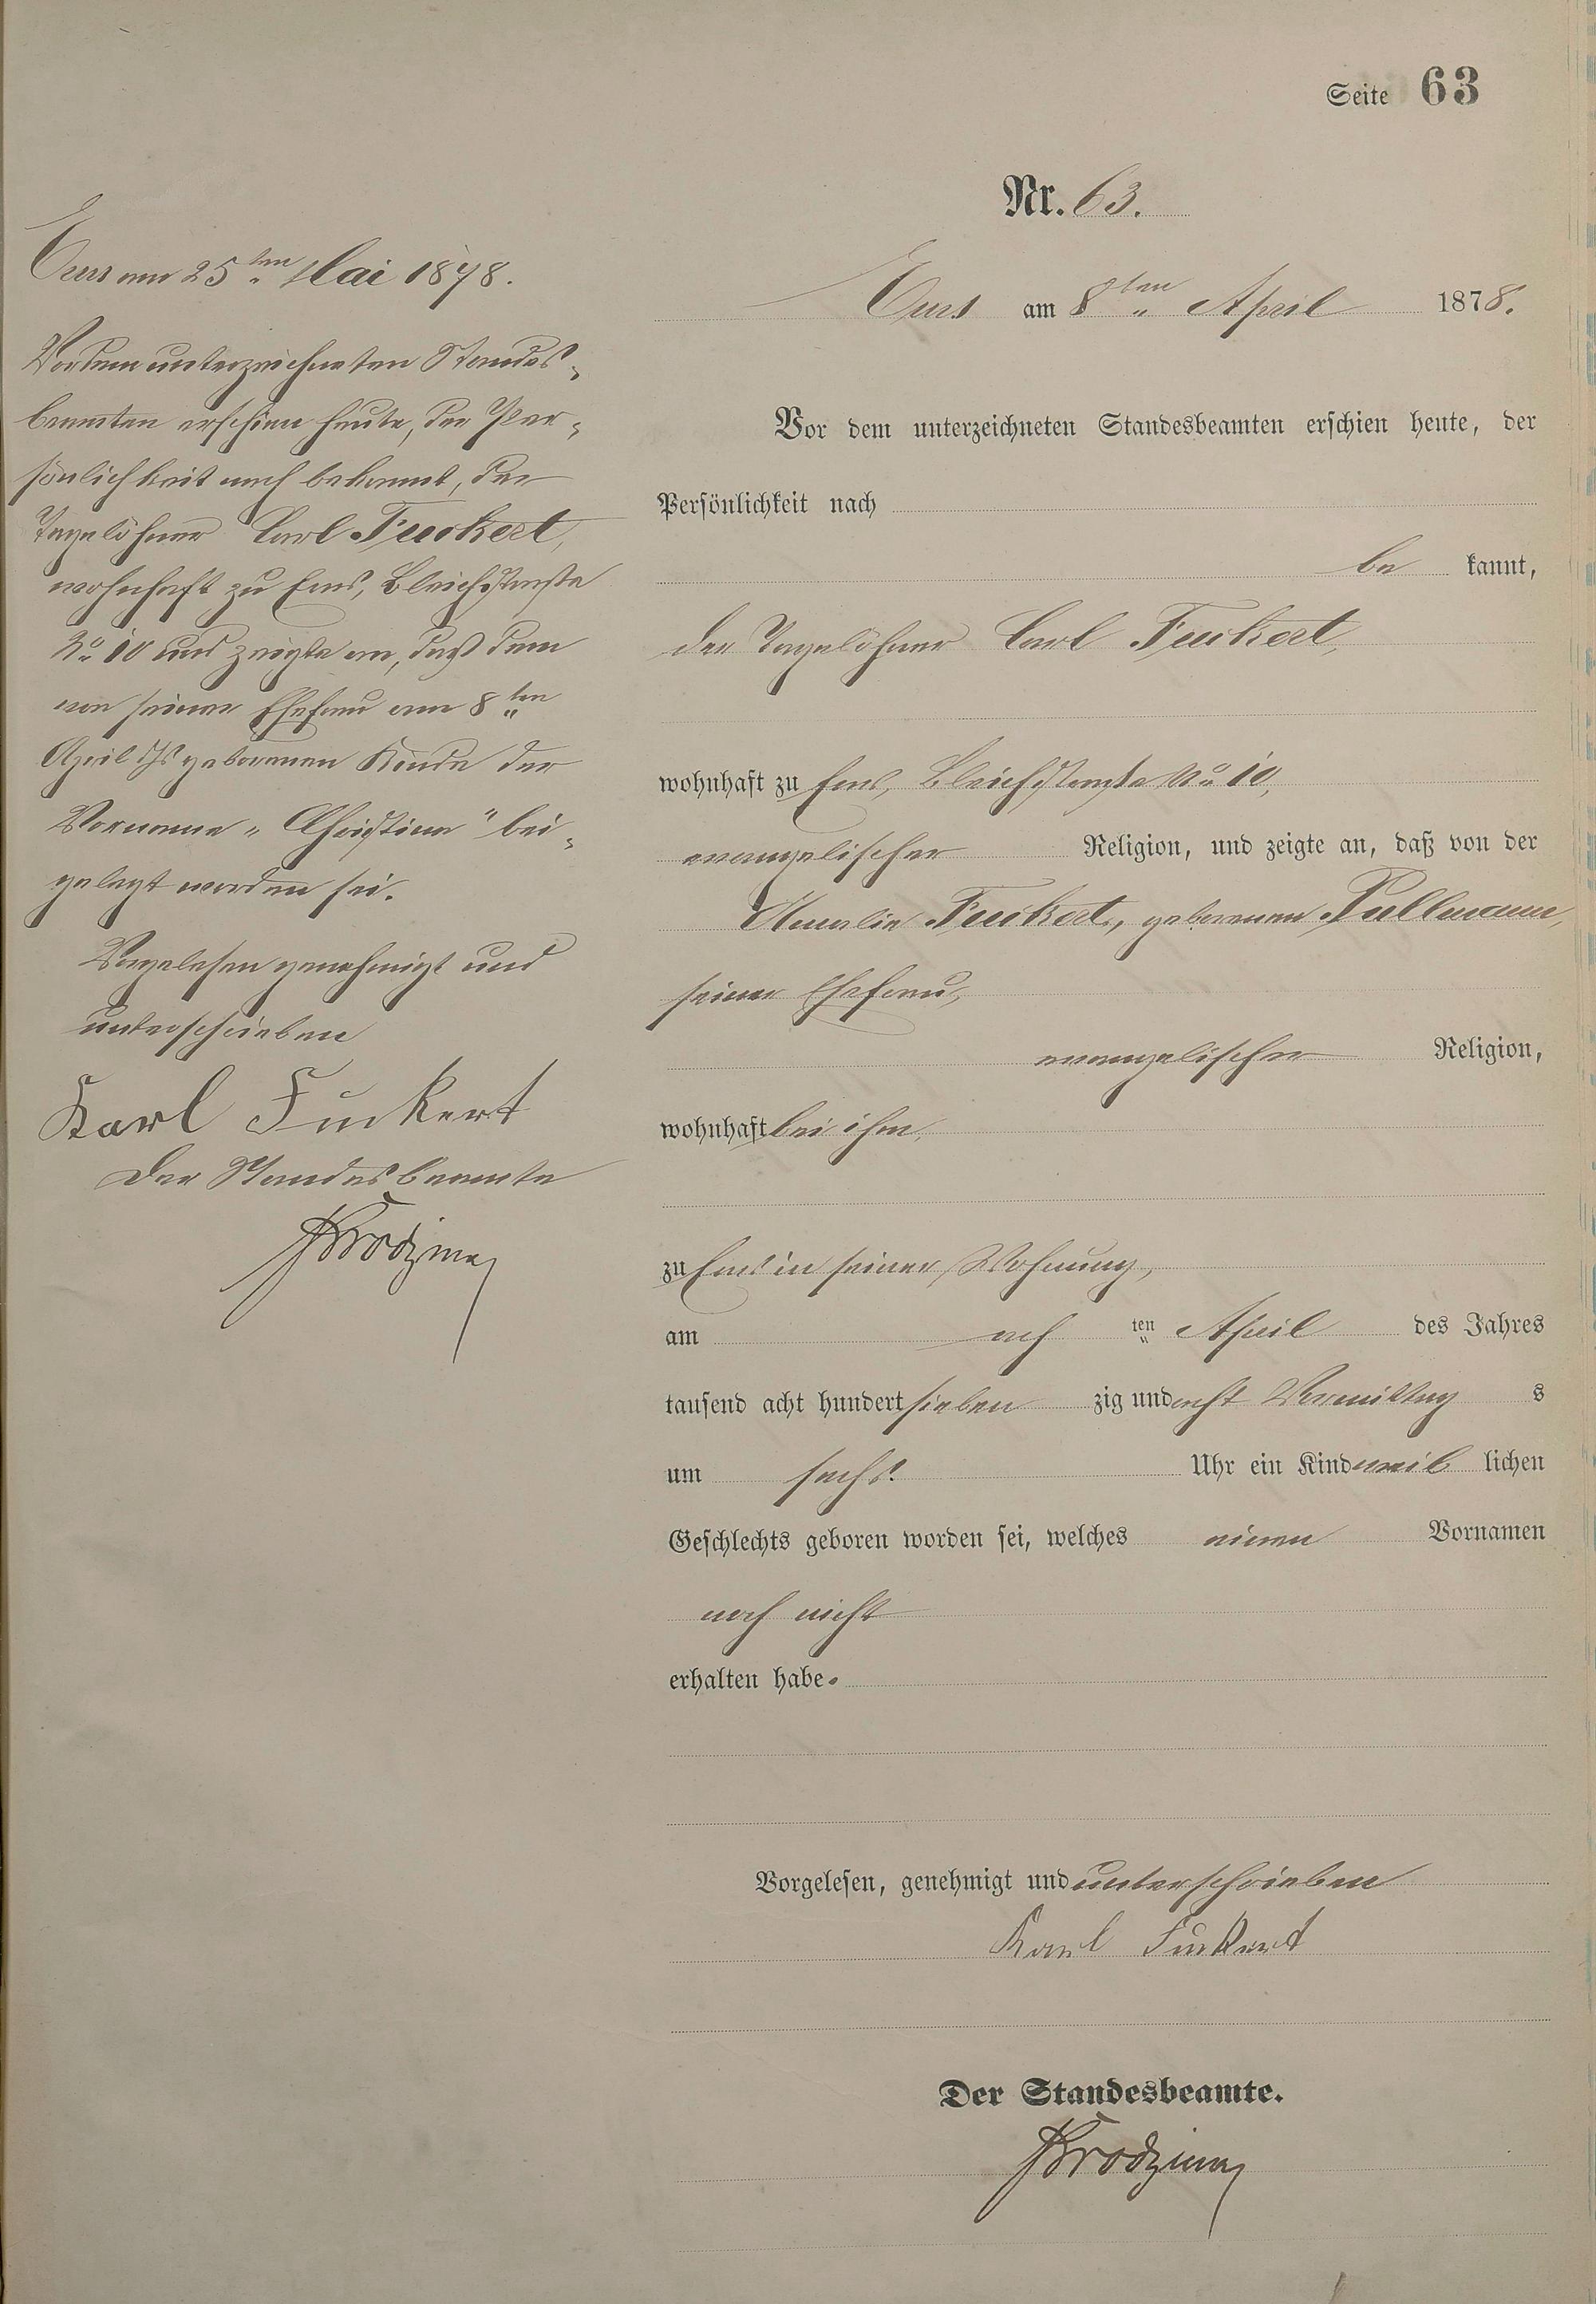 Seite 63
Nr. 63.
Ems am 8ten April 1878.
Vor dem unterzeichneten Standesbeamten erschien heute, der
Persönlichkeit nach
be kannt,
der Tagelöhner Carl Feickert,
wohnhaft zu Ems, Bleichstraße No 10,
evangelischer Religion, und zeigte an, daß von der
Amalie Feickert, geborenen Pullmann,
seiner Ehefrau,
evangelischer Religion,
wohnhaft bei ihm,
zu Ems in seiner Wohnung,
am ach ten April des Jahres
tausend acht hundert sieben zig und acht Vormittag s
um sechs Uhr ein Kind weib lichen
Geschlechts geboren worden sei, welches einen Vornamen
noch nicht
erhalten habe.
Vorgelesen, genehmigt und unterschrieben
Karl Feickert
Der Standesbeamte.
Ems am 25ten Mai 1878.
Vor dem unterzeichneten Standes-
beamten erschien heute, der Per-
sönlichkeit nach bekannt, der
Tagelöhner Carl Feickert,
wohnhaft zu Ems, Bleichstraße
No 10 und zeigte an, daß dem
von seiner Ehefrau am 8ten
April d Js geborenen Kinde der
Vorname „Christine" bei-
gelegt worden sei.
Vorgelesen genehmigt und
unterschrieben
Karl Feickert
Der Standesbeamte